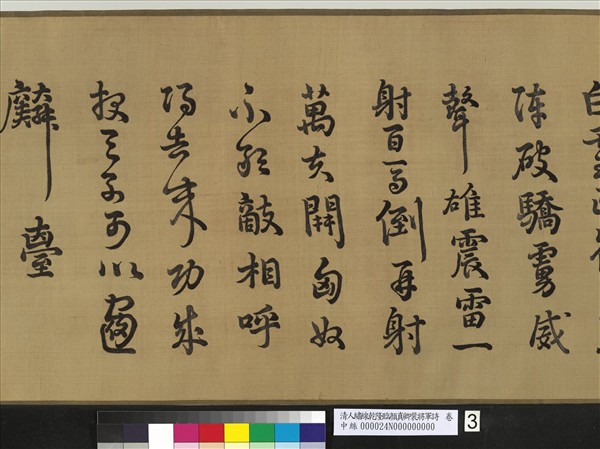 白
陣破驕虜威
聲雄震雷一
射百馬倒再射
萬夫開匈奴
不敢敵相呼
歸去來功成
報天子可以畫
麟臺
清人繡線乾隆臨顏真卿裴將軍詩 卷
中絲 000024N000000000
3